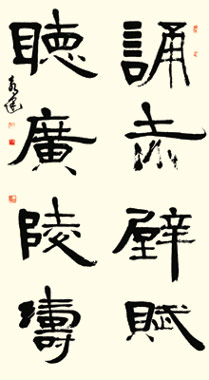 誦赤壁賦
聽廣陵濤